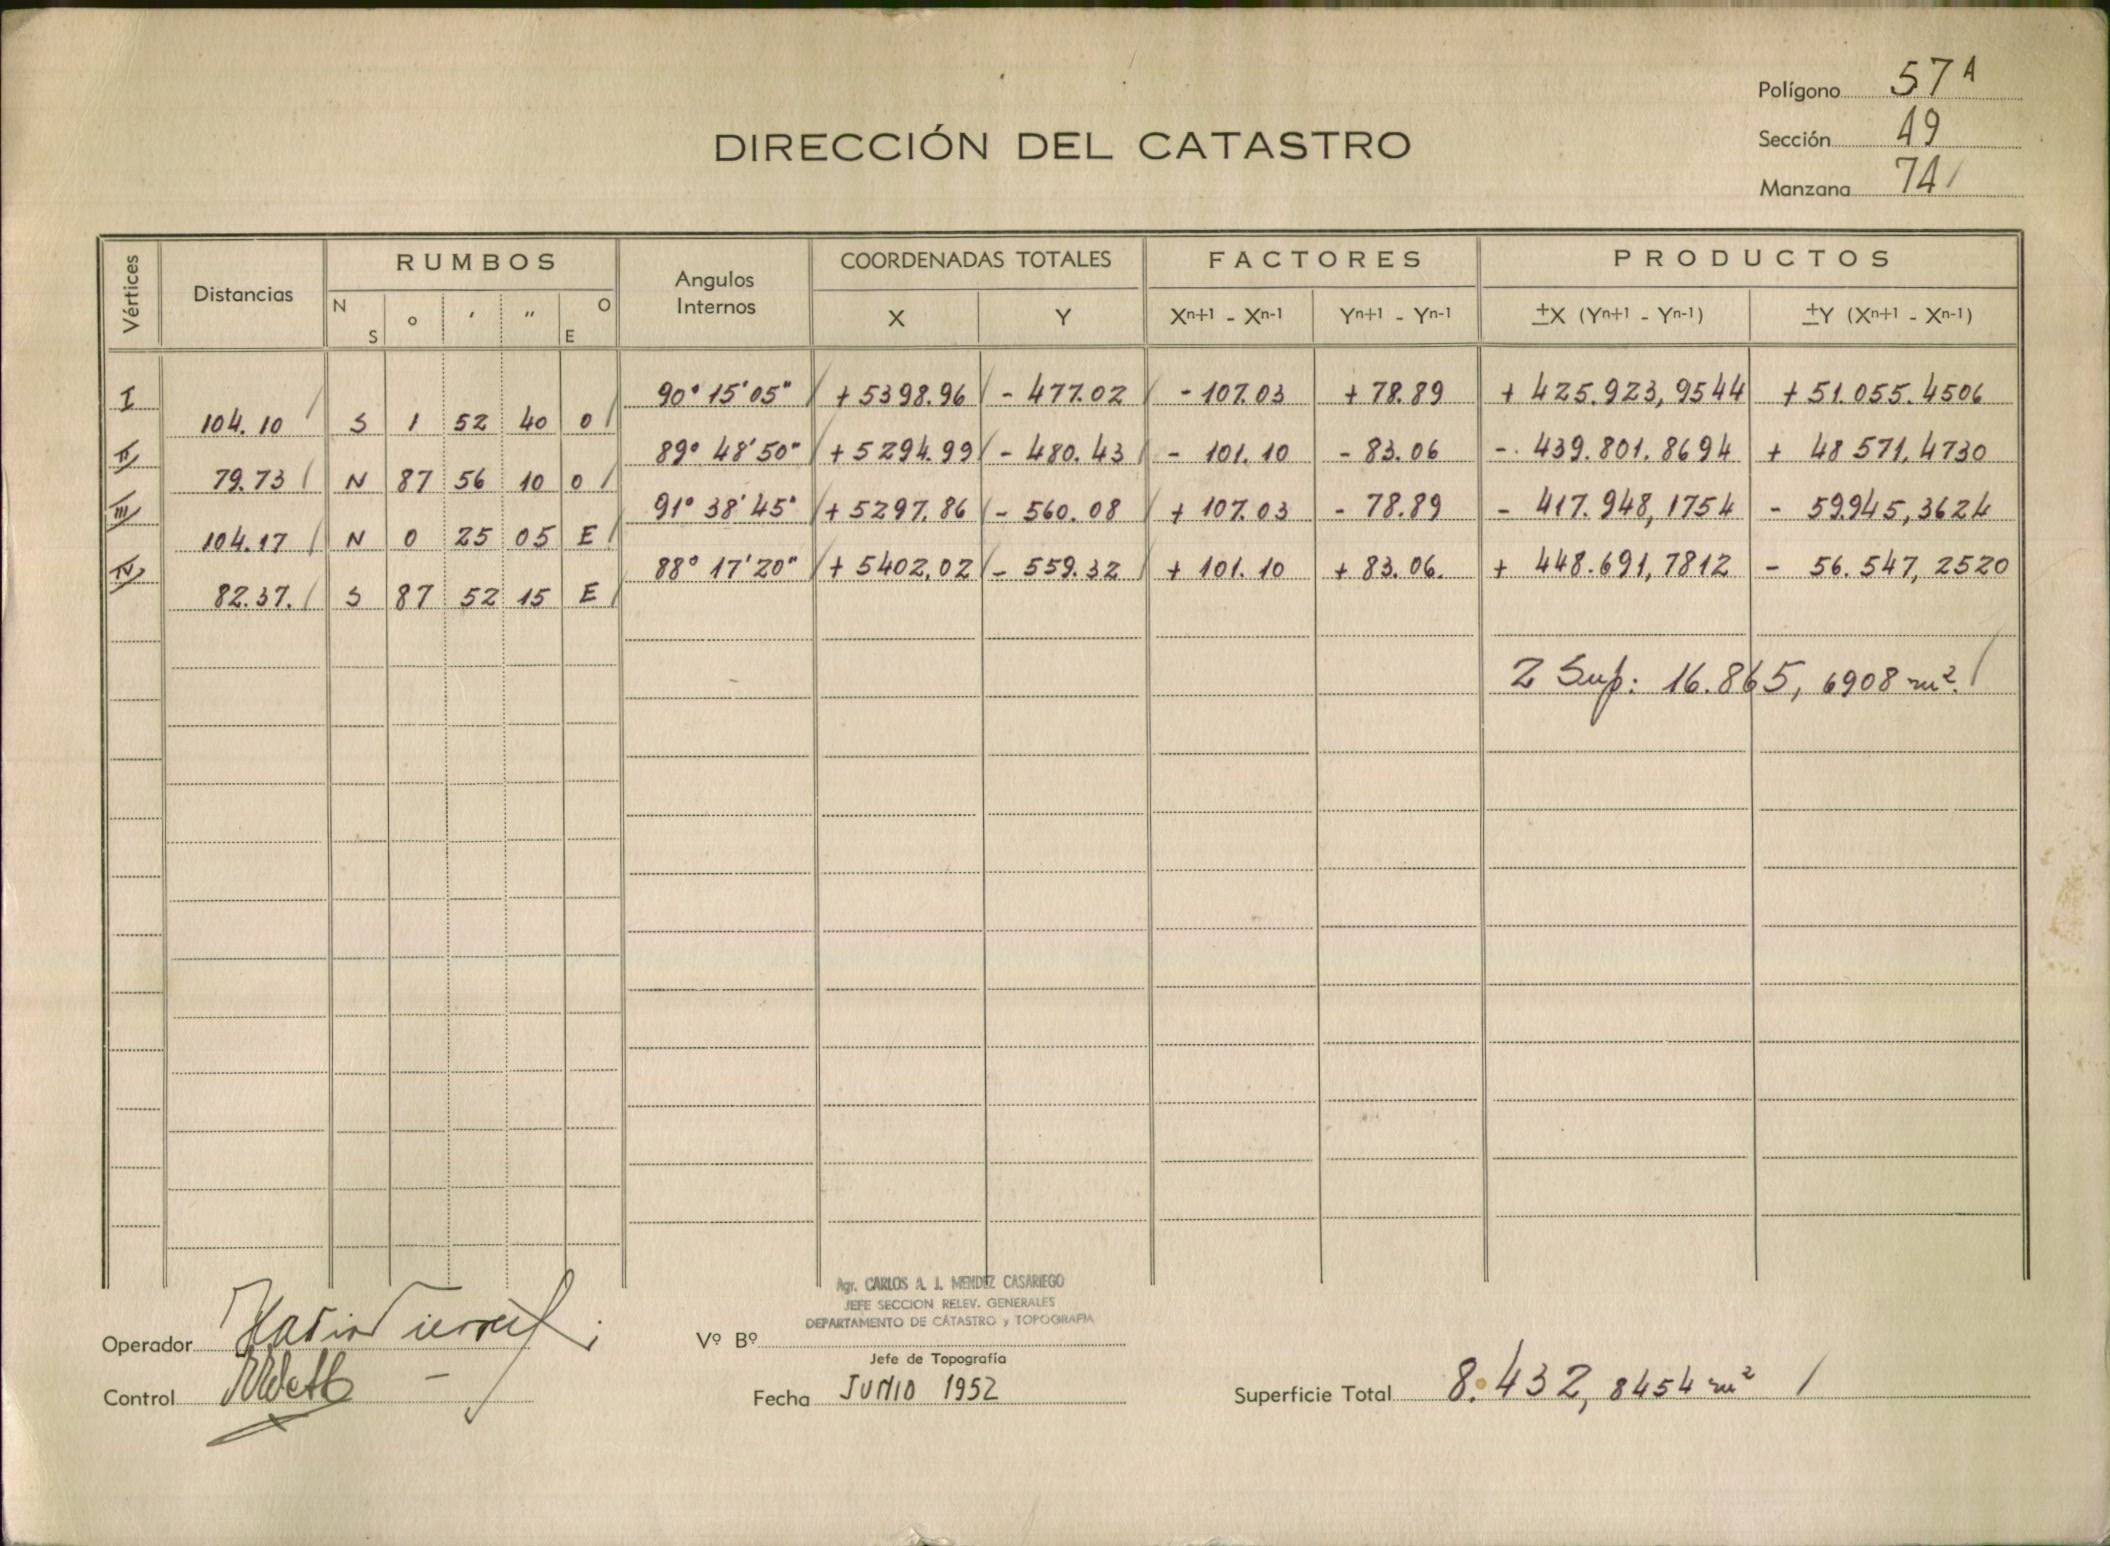 Polígono 57A
Sección 49
Manzana 74
DIRECCIÓN DEL CATASTRO
Vértices Distancias RUMBOS Angulos Internos COORDENADAS TOTALES FACTORES PRODUCTOS
N S ° ' " O E X Y Xn+1 - Xn-1 Yn+1 - Yn-1 ±X (Yn+1 - Yn-1) ±Y (Xn+1 - Xn-1)
I 90° 15' 05" + 5398.96 - 477.02 - 107.03 + 78.89 + 425.923,9544 + 51.055.4506
104.10 S 1 52 40 O
II 89° 48' 50" + 5294.99 - 480.43 - 101.10 - 83.06 - 439.801.8694 + 48 571,4730
79.73 N 87 56 10 O
III 91° 38' 45" + 5297.86 - 560.08 + 107.03 - 78.89 - 417.948,1754 - 59.945,3624
104.17 N 0 25 05 E
IV 88° 17' 20" + 5402,02 - 559.32 + 101.10 + 83.06. + 448.691,7812 - 56.547,2520
82.37. S 87 52 15 E
2 Sup: 16.865,6908 m².
Agr. CARLOS A. J. MENDEZ CASARIEGO
JEFE SECCION RELEV. GENERALES
DEPARTAMENTO DE CATASTRO y TOPOGRAFIA
Operador
Vº Bº
Jefe de Topografía
Control
Fecha JUNIO 1952
Superficie Total 8.432,8454 m²